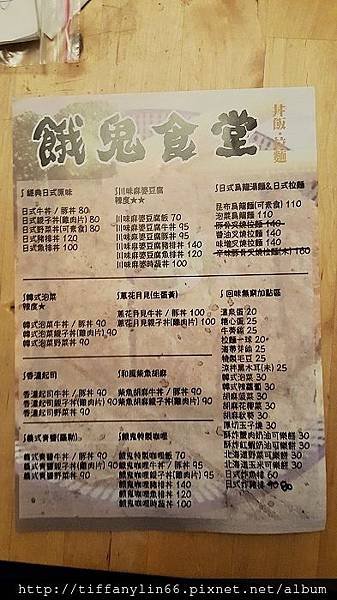 餓鬼食堂
丼飯·拉麵
經典日式原味
日式牛丼 / 豚丼 80
日式親子丼(雞肉片) 80
日式野菜丼(可素食) 80
日式豬排丼 120
日式魚排丼 100
川味麻婆豆腐
辣度★★
川味麻婆豆腐飯 70
川味麻婆豆腐牛丼 95
川味麻婆豆腐豚丼 95
川味麻婆豆腐豬排丼 140
川味麻婆豆腐魚排丼 120
川味麻婆時蔬丼 100
日式烏龍湯麵&日式拉麵
昆布烏龍麵(可素食) 110
泡菜烏龍麵 110
豚骨叉燒拉麵 140
醬油叉燒拉麵 140
味噌叉燒拉麵 140
辛味豚骨叉燒拉麵(末) 160
韓式泡菜
辣度★
韓式泡菜牛丼 / 豚丼 90
韓式泡菜親子丼(雞肉片) 90
韓式泡菜野菜丼 90
蔥花月見(生蛋黃)
蔥花月見牛丼 / 豚丼 100
蔥花月見親子丼(雞肉片) 100
回味無窮加點區
溫泉蛋 20
糖心蛋 25
牛蒡絲 25
拉麵一球 20
海帶芽絲 25
秘製毛豆 25
涼拌黑木耳(末) 25
韓式泡菜 30
韓式辣蘿蔔 30
胡麻菠菜 30
胡麻花椰菜 30
胡麻軟筴 30
厚切玉子燒 30
酥炸蟹肉奶油可樂餅 30
酥炸紅蝦奶油可樂餅 30
北海道野菜可樂餅 30
北海道玉米可樂餅 30
日式炸魚條 60
日式炸豬排 80
香濃起司
香濃起司牛丼 / 豚丼 90
香濃起司親子丼(雞肉片) 90
香濃起司野菜丼 90
和風柴魚胡麻
柴魚胡麻牛丼 / 豚丼 90
柴魚胡麻親子丼(雞肉片) 90
義式青醬牛丼 / 豚丼 90
義式青醬親子丼(雞肉片) 90
義式青醬野菜丼 90
餓鬼特製咖哩
餓鬼特製咖哩飯 70
餓鬼咖哩牛丼 / 豚丼 95
餓鬼咖哩親子丼(雞肉片) 95
餓鬼咖哩豬排丼 140
餓鬼咖哩魚排丼 120
餓鬼咖哩時蔬丼 100
http://tiffanylin66.pixnet.net/album